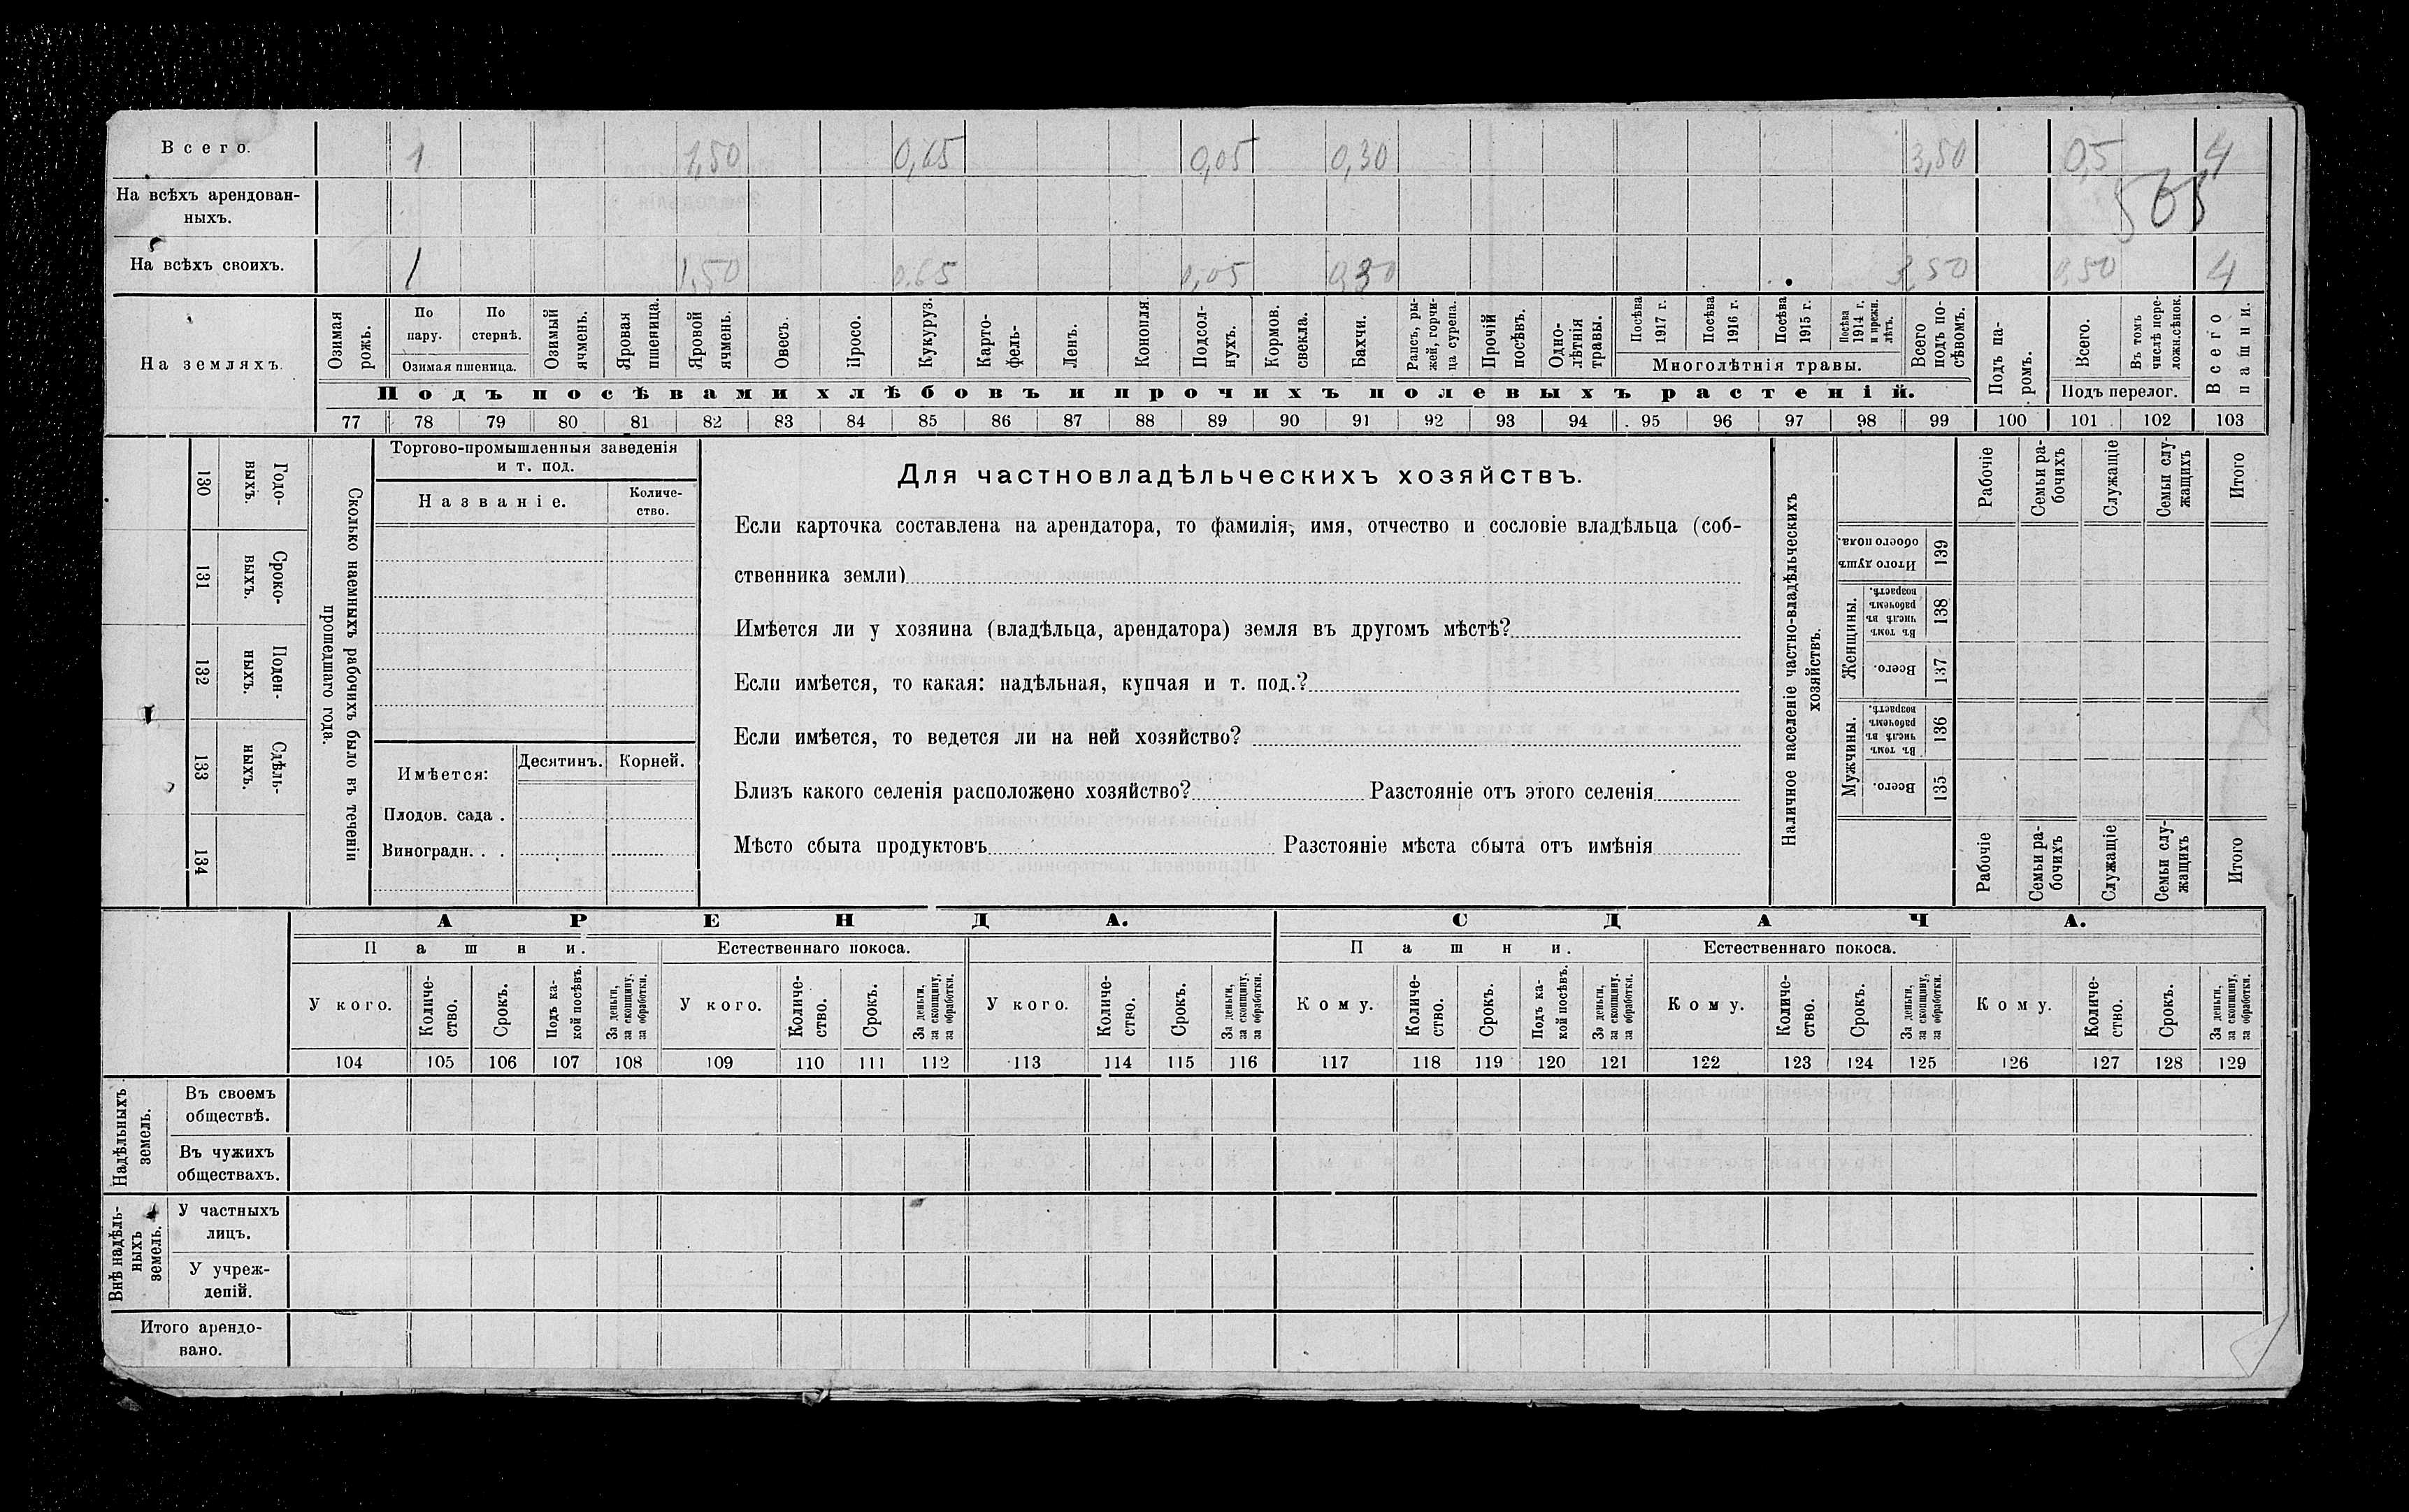 Всего. 1 1,50 0,65 0,05 0,30 3,50 0,5 4
На всѣхъ арендован-
ныхъ.
565
На всѣхъ своихъ. 1 1,50 0.65 0,05 0,30 3,50 0,50 4
На земляхъ.
Озимая рожь.
По пару.
По стернѣ.
Озимая пшеница.
Озимый ячмень.
Яровая пшеница.
Яровой ячмень.
Овесъ.
Просо.
Кукуруз.
Карто-
фель-
Ленъ.
Конопля.
Подсол-
нухъ.
Кормов. свекла.
Бахчи.
Рапсъ, ры-
жей, горчи-
ца сурепа.
Прочій посѣвъ.
Одно-
лѣтнія травы.
Посѣва 1917 г.
Посѣва 1916 г.
Посѣва 1915 г.
Посѣва 1914 г. и прежн. лѣтъ.
Многолѣтнія травы.
Всего подъ по-
сѣвомъ.
Подъ посѣвами хлѣбовъ и прочихъ полевыхъ растеній.
Подъ па-
ромъ.
Всего.
Въ томъ числѣ пере-
ложн.сѣнок.
Подъ перелог.
Всего пашни.
77 78 79 80 81 82 83 84 85 86 87 88 89 90 91 92 93 94 95 96 97 98 99 100 101 102 103
130 Годо-
выхъ.
131 Сроко-
выхъ.
132 Поден-
ныхъ.
133 Сдѣль-
ныхъ.
134
Сколько наемныхъ рабочихъ было въ теченіи
прошедшаго года.
Торгово-промышленныя заведенія
и т. под.
Названіе.
Количе-
ство.
Имѣется:
Десятинъ. Корней.
Плодов. сада .
Виноградн. . .
Для частновладѣльческихъ хозяйствъ.
Если карточка составлена на арендатора, то фамилія, имя, отчество и сословіе владѣльца (соб-
ственника земли)
Имѣется ли у хозяина (владѣльца, арендатора) земля въ другомъ мѣстѣ?
Если имѣется, то какая: надѣльная, купчая и т. под.?
Если имѣется, то ведется ли на ней хозяйство?
Близъ какого селенія расположено хозяйство? Разстояніе отъ этого селенія
Мѣсто сбыта продуктовъ Разстояніе мѣста сбыта отъ имѣнія
Наличное населеніе частно-владѣльческихъ
хозяйствъ.
Рабочіе
Семьи ра-
бочихъ
Служащіе
Семьи слу-
жащихъ
Итого
Итого душъ обоего пола. 139
Женщины.
Въ томъ числѣ въ рабочемъ возрастѣ. 138
Всего. 137
Мужчины.
Въ томъ числѣ въ рабочемъ возрастѣ. 136
Всего. 135
Рабочіе
Семьи ра-
бочихъ
Служащіе
Семьи слу-
жащихъ
Итого
АРЕНДА. СДАЧА.
Пашни. Естественнаго покоса. Пашни. Естественнаго покоса.
У кого.
Количе-
ство.
Срокъ.
Подъ ка-
кой посѣвъ.
За деньги, за скопщину, за обработки.
У кого.
Количе-
ство.
Срокъ.
За деньги, за скопщину, за обработки.
У кого.
Количе-
ство.
Срокъ.
За деньги, за скопщину, за обработки.
Кому.
Количе-
ство.
Срокъ.
Подъ ка-
кой посѣвъ.
За деньги, за скопщину, за обработки.
Кому.
Количе-
ство.
Срокъ.
За деньги, за скопщину, за обработки.
Кому.
Количе-
ство.
Срокъ.
За деньги, за скопщину, за обработки.
104 105 106 107 108 109 110 111 112 113 114 115 116 117 118 119 120 121 122 123 124 125 126 127 128 129
Надѣльныхъ земель.
Въ своемъ
обществѣ.
Въ чужихъ
обществахъ.
Внѣ надѣль-
ныхъ земель.
У частныхъ
лицъ.
У учреж-
деній.
Итого арендо-
вано.